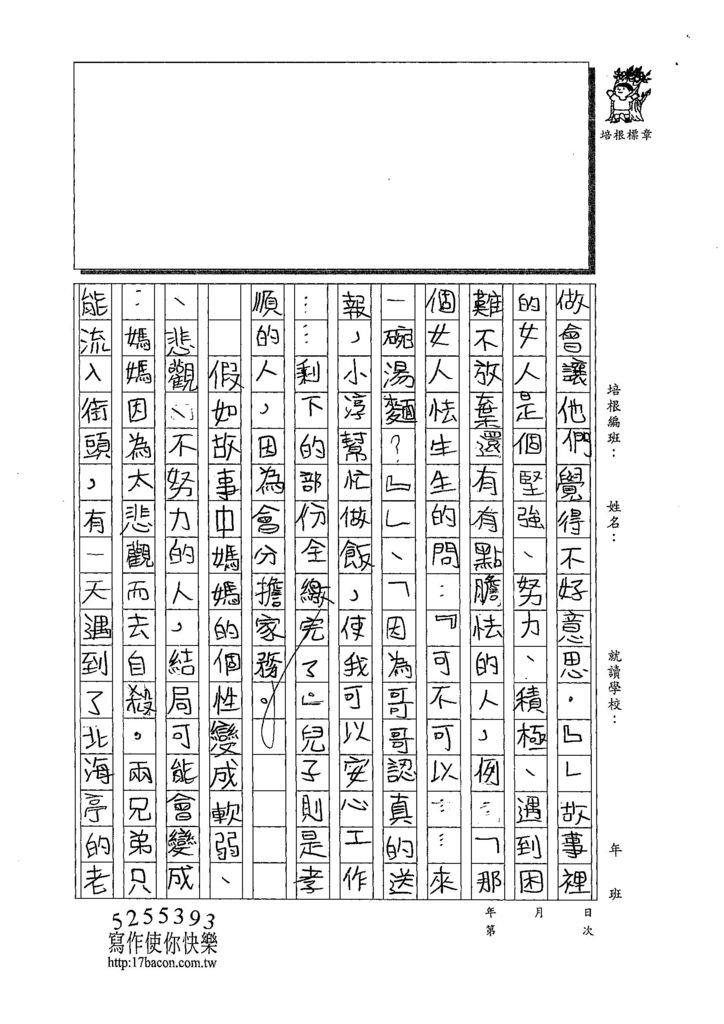 培根標章
培根編班：
姓名：
就讀學校：
年 班
做會讓他們覺得不好意思。』」故事裡
的女人是個堅強、努力、積極、遇到困
難不放棄還有有點膽怯的人，例：「那
個女人怯生生的問：『可不可以……來
一碗湯麵？』」、「因為哥哥認真的送
報，小淳幫忙做飯，使我可以安心工作
……剩下的部份全繳完了」兒子則是孝
順的人，因為會分擔家務。
假如故事中媽媽的個性變成軟弱、
、悲觀、不努力的人，結局可能會變成
：媽媽因為太悲觀而去自殺。兩兄弟只
能流入街頭，有一天遇到了北海亭的老
年 月 日
第 次
5255393
寫作使你快樂
http:17bacon.com.tw